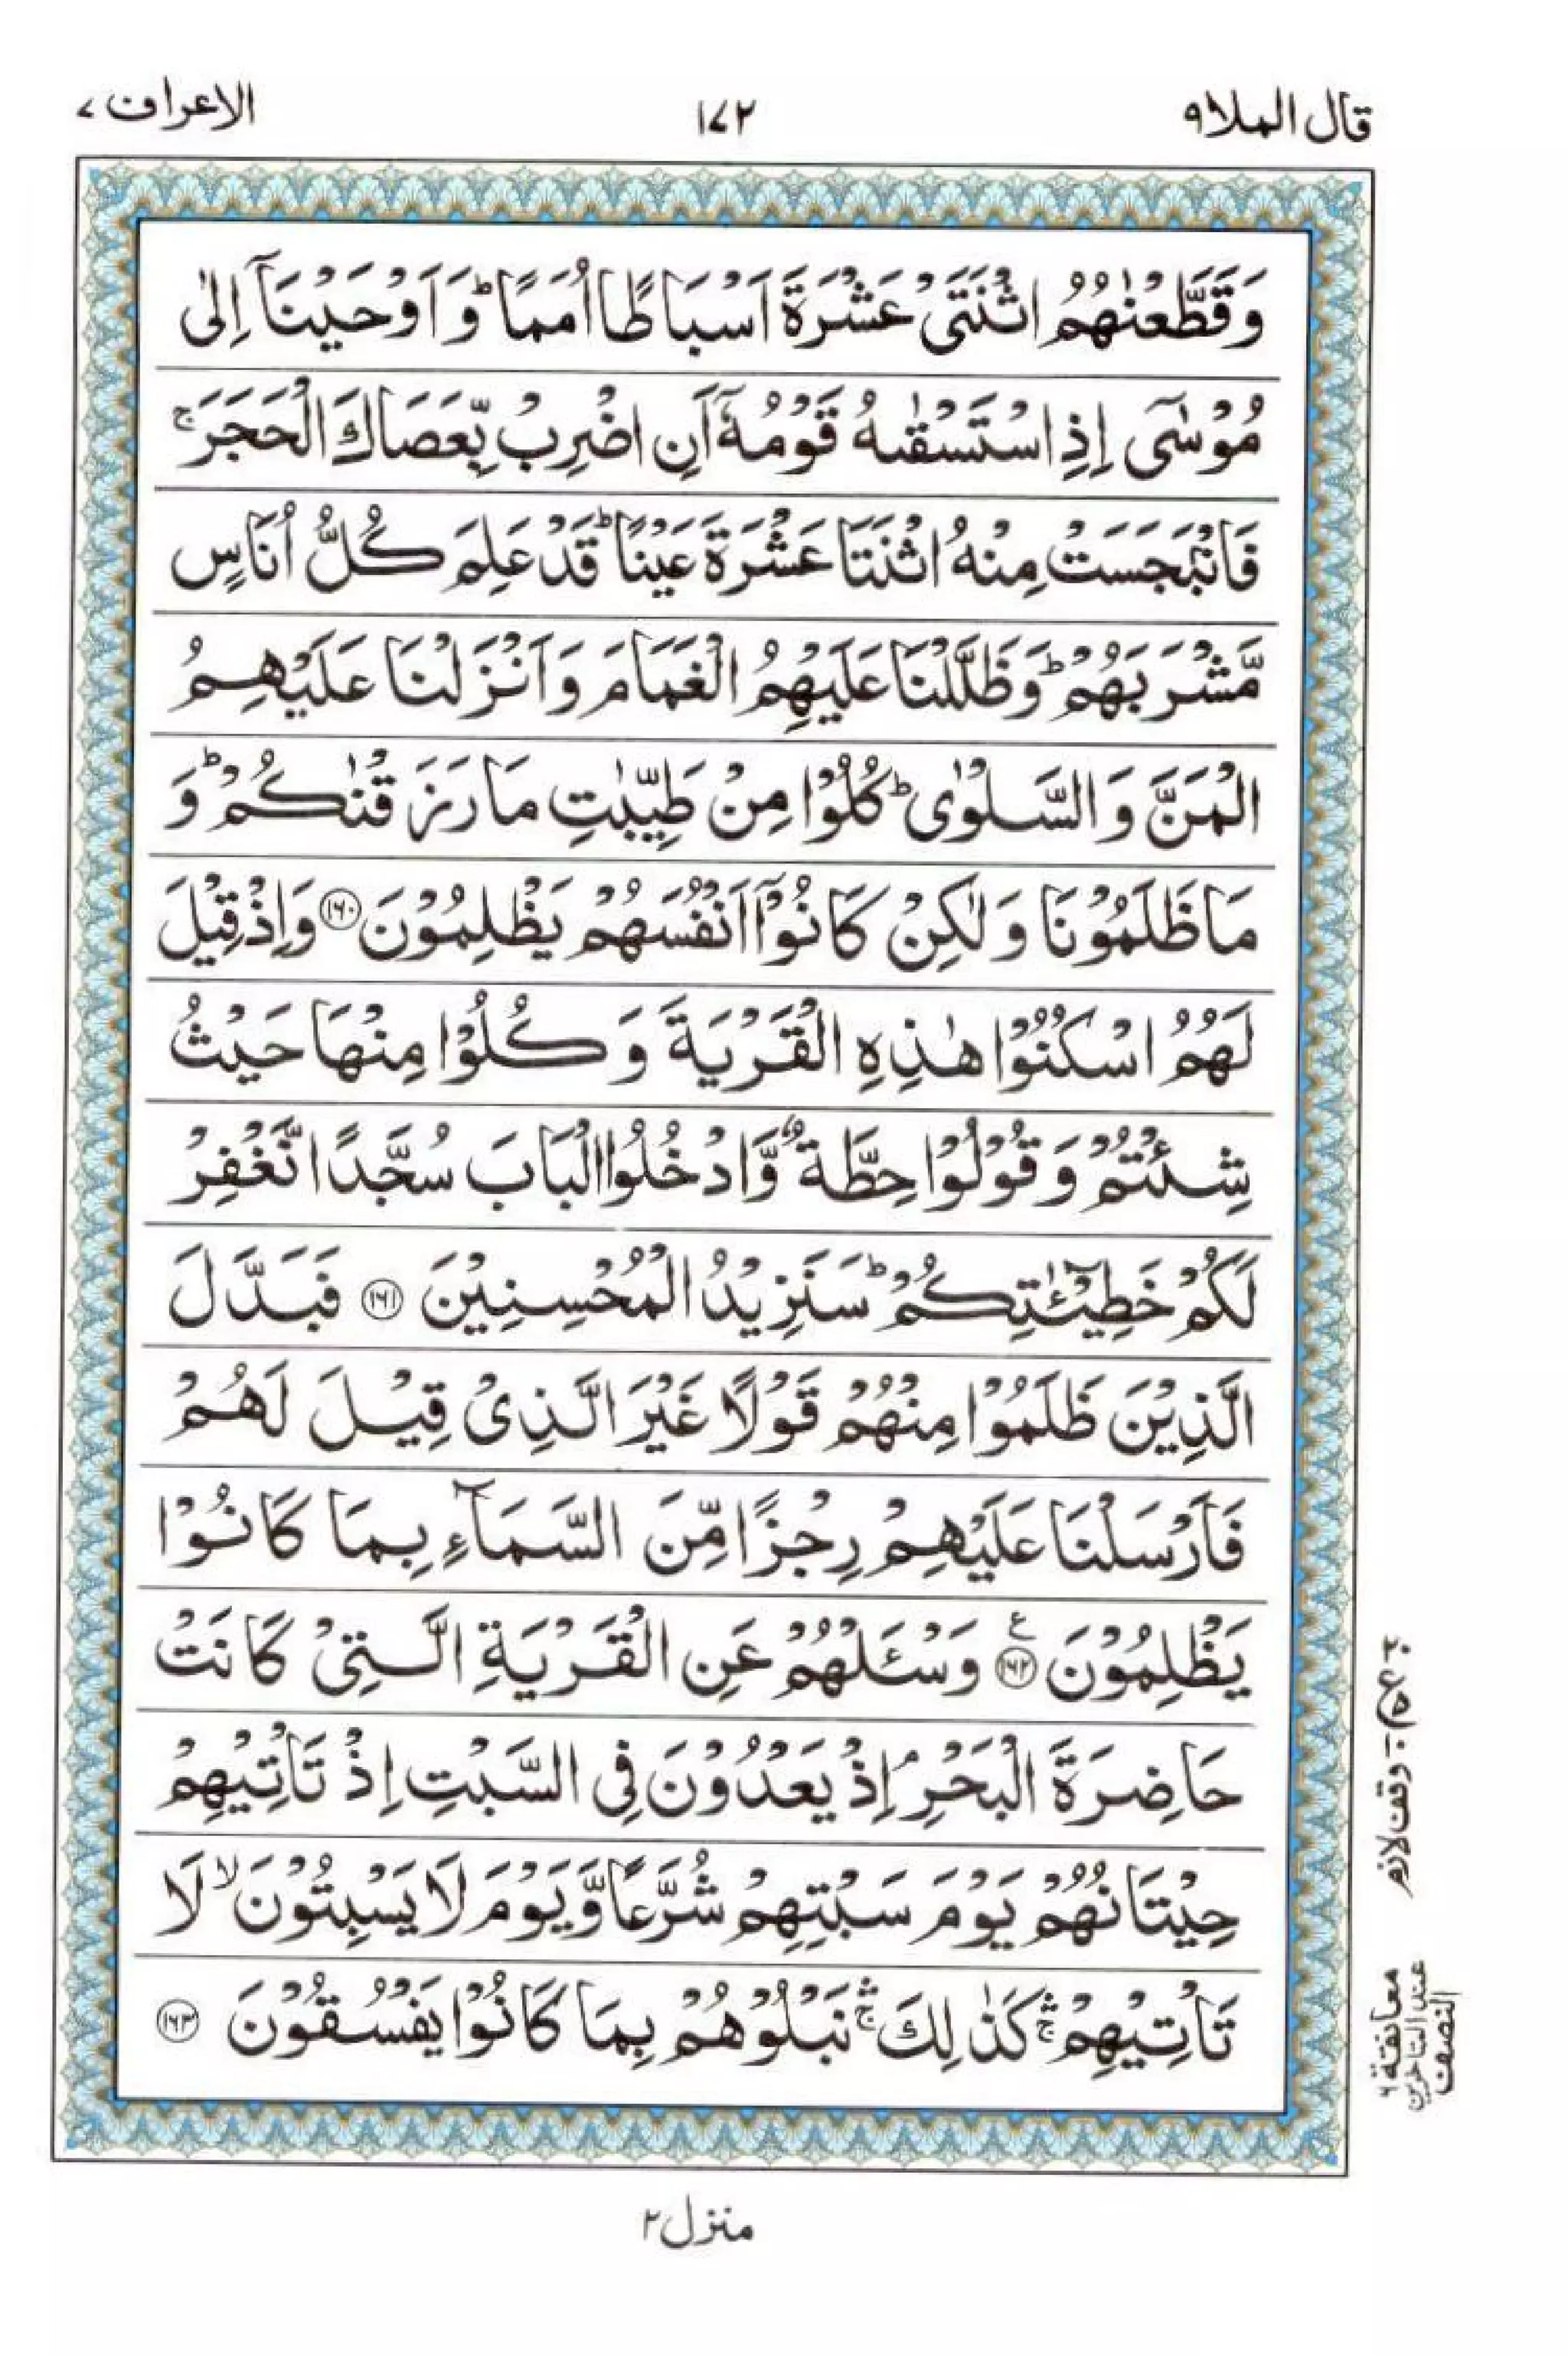 قال الملا ٩
١٧٢
الاعراف ٧
وَقَطَّعْنٰهُمُ اثْنَتَیْ عَشْرَةَ اَسْبَاطًا اُمَمًا ؕ وَاَوْحَیْنَاۤ اِلٰی
مُوْسٰۤی اِذِ اسْتَسْقٰىهُ قَوْمُهٗۤ اَنِ اضْرِبْ بِّعَصَاكَ الْحَجَرَ ۚ
فَانْۢبَجَسَتْ مِنْهُ اثْنَتَا عَشْرَةَ عَیْنًا ؕ قَدْ عَلِمَ كُلُّ اُنَاسٍ
مَّشْرَبَهُمْ ؕ وَظَلَّلْنَا عَلَیْهِمُ الْغَمَامَ وَاَنْزَلْنَا عَلَیْهِمُ
الْمَنَّ وَالسَّلْوٰی ؕ كُلُوْا مِنْ طَیِّبٰتِ مَا رَزَقْنٰكُمْ ؕ وَ
مَا ظَلَمُوْنَا وَلٰكِنْ كَانُوْۤا اَنْفُسَهُمْ یَظْلِمُوْنَ ﴿۱۶۰﴾ وَاِذْ قِیْلَ
لَهُمُ اسْكُنُوْا هٰذِهِ الْقَرْیَةَ وَكُلُوْا مِنْهَا حَیْثُ
شِئْتُمْ وَقُوْلُوْا حِطَّةٌ وَّادْخُلُوا الْبَابَ سُجَّدًا نَّغْفِرْ
لَكُمْ خَطِیْٓـٰٔتِكُمْ ؕ سَنَزِیْدُ الْمُحْسِنِیْنَ ﴿۱۶۱﴾ فَبَدَّلَ
الَّذِیْنَ ظَلَمُوْا مِنْهُمْ قَوْلًا غَیْرَ الَّذِیْ قِیْلَ لَهُمْ
فَاَرْسَلْنَا عَلَیْهِمْ رِجْزًا مِّنَ السَّمَآءِ بِمَا كَانُوْا
یَظْلِمُوْنَ ﴿۱۶۲﴾ ع وَسْـَٔلْهُمْ عَنِ الْقَرْیَةِ الَّتِیْ كَانَتْ
حَاضِرَةَ الْبَحْرِ ۘ اِذْ یَعْدُوْنَ فِی السَّبْتِ اِذْ تَاْتِیْهِمْ
حِیْتَانُهُمْ یَوْمَ سَبْتِهِمْ شُرَّعًا وَّیَوْمَ لَا یَسْبِتُوْنَ ۙ لَا
تَاْتِیْهِمْ ۛۚ كَذٰلِكَ ۛۚ نَبْلُوْهُمْ بِمَا كَانُوْا یَفْسُقُوْنَ ﴿۱۶۳﴾
وقف لازم
معانقة ٦
عند المتاخرين
النصف
منزل ٢